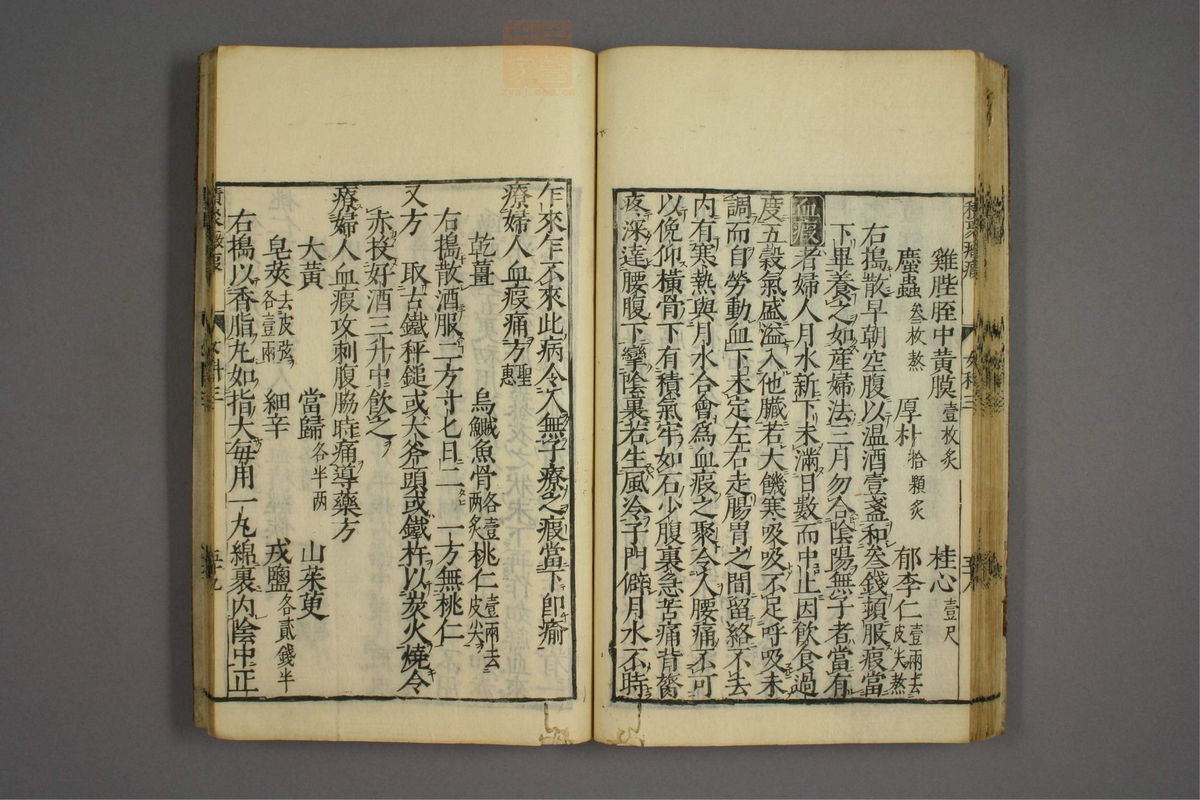 雞䏶胵中黃膜壹枚炙　桂心壹尺
䗪蟲叁枚熬　厚朴拾顆炙　郁李仁壹兩去皮尖熬
右搗散早朝空腹以温酒壹盞和叁錢頓服瘕當
下畢養之如産婦法三月勿合陰陽無子者當有
血瘕者婦人月水新下未滿日數而中止因飲食過
度五榖氣盛溢入他臓若大饑寒吸吸不足呼吸未
調而自勞動血下未定左右走腸胃之間留絡不去
内有寒熱與月水合會爲血瘕之聚令人腰痛不可
以俛仰橫骨下有積氣牢如石少腹裏急苦痛背膂
疼深達腰腹下攣陰裏若生風冷子門僻月水不時
乍來乍不來此病令人無子療之瘕當下即瘉
療婦人血瘕痛方聖惠
乾薑　烏鰂魚骨各壹兩炙　桃仁壹兩去皮尖
右搗散酒服二方寸匕日二　一方無桃仁
又方　取古鐵秤鎚或大斧頭或鐵杵以炭火燒令
赤投好酒三升中飲之
療婦人血瘕攻刺腹脇時痛導藥方
大黃　當歸各半兩　山茱萸
皂莢去皮弦各壹兩　細辛　戎鹽各貳錢半
右搗以香脂丸如指大每用一丸綿裹内陰中正
婦科三
五十九